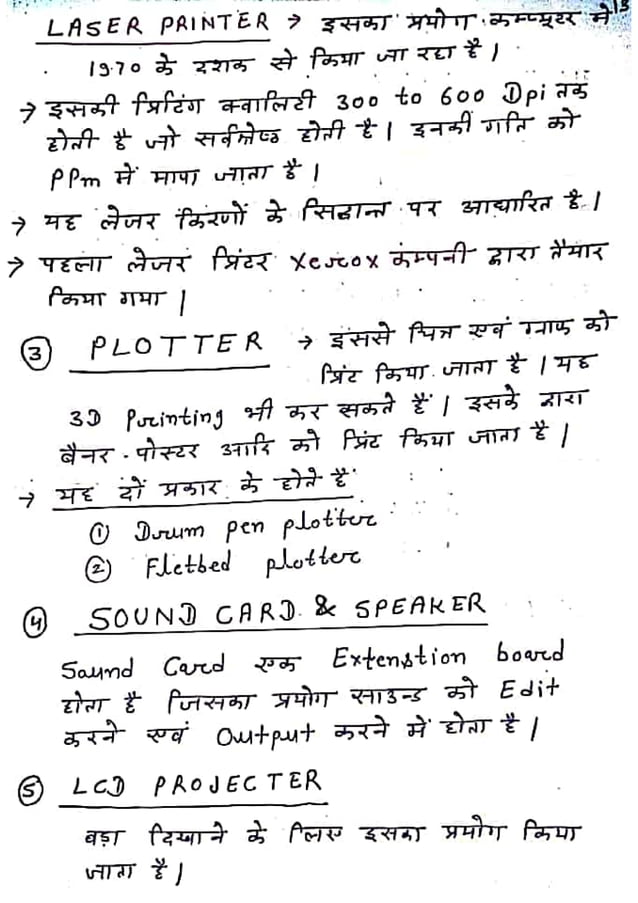 13
LASER PRINTER → इसका प्रयोग कम्प्यूटर में
1970 के दशक से किया जा रहा है।
→ इसकी प्रिटिंग क्वालिटी 300 to 600 Dpi तक
होती है जो सर्वश्रेष्ठ होती है। इनकी गति को
PPm में मापा जाता है।
→ यह लेजर किरणों के सिद्धान्त पर आधारित है।
→ पहला लेजर प्रिंटर Xerox कंम्पनी द्वारा तैयार
किया गया।
③ PLOTTER → इससे चित्र एवं ग्राफ को
प्रिंट किया जाता है। यह
3D Printing भी कर सकते हैं। इसके द्वारा
बैनर - पोस्टर आदि को प्रिंट किया जाता है।
→ यह दो प्रकार के होते हैं
① Drum pen plotter
② Fletbed plotter
④ SOUND CARD & SPEAKER
Saund Card एक Extenstion board
होता है जिसका प्रयोग साउन्ड को Edit
करने एवं Output करने में होता है।
⑤ LCD PROJECTER
बड़ा दिखाने के लिए इसका प्रयोग किया
जाता है।